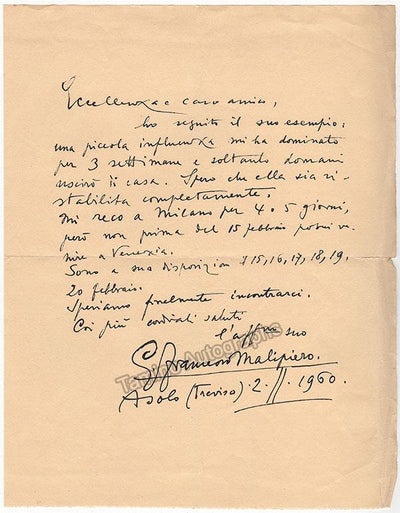 Eccellenza e caro amico,
ho seguito il suo esempio:
una piccola influenza mi ha dominato
per 3 settimane e soltanto domani
uscirò di casa. Spero che ella sia ri-
stabilita completamente.
Mi reco a Milano per 4 o 5 giorni,
però non prima del 15 febbraio potrei ve-
nire a Venezia.
Sono a sua disposizione il 15, 16, 17, 18, 19,
20 febbraio.
Speriamo finalmente incontrarci.
Coi più cordiali saluti
l'affmo suo
G. Francesco Malipiero.
Asolo (Treviso) 2. II. 1960.
Tamino Autographs